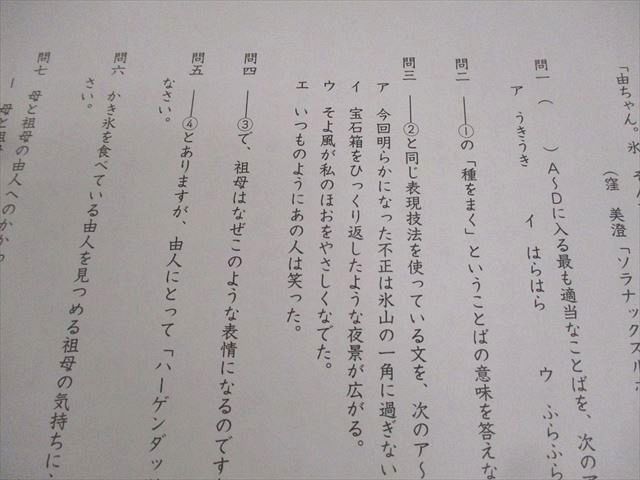 「由ちゃん。氷
（窪　美澄「ソラナックスルー
問一　（　　）A～Dに入る最も適当なことばを、次のア
ア　うきうき　　イ　はらはら　　ウ　ふらふら
問二　――①の「種をまく」ということばの意味を答えな
問三　――②と同じ表現技法を使っている文を、次のア～
ア　今回明らかになった不正は氷山の一角に過ぎない
イ　宝石箱をひっくり返したような夜景が広がる。
ウ　そよ風が私のほおをやさしくなでた。
エ　いつものようにあの人は笑った。
問四　――③で、祖母はなぜこのような表情になるのです
問五　――④とありますが、由人にとって「ハーゲンダッ
なさい。
問六　かき氷を食べている由人を見つめる祖母の気持ちに、
さい。
問七　母と祖母の由人へのかかわ
母と祖母